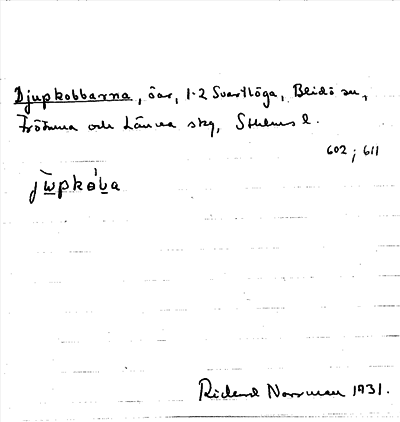 Djupkobbarna, öar, 1-2 Svartlöga, Blidö sn,
Frötuna och Länna skg, Sthlms l.
602; 611
Rickard Norrman 1931.